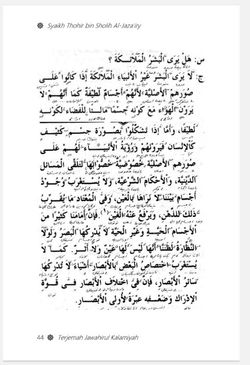 Syaikh Thohir bin Sholih Al-Jaza'iry
س: هَلْ يَرَى الْبَشَرُ الْمَلَائِكَةَ ؟
ج: لَا يَرَى الْبَشَرُ غَيْرُ الْأَنْبِيَاءِ الْمَلَائِكَةَ إِذَا كَانُوا عَلَى
صُوَرِهِمُ الْأَصْلِيَّةِ لِأَنَّهُمْ أَجْسَامٌ لَطِيفَةٌ كَمَا أَنَّهُمْ لَا
يَرَوْنَ الْهَوَاءَ مَعَ كَوْنِهِ جِسْمًا مَالِئًا لِلْفَضَاءِ لِكَوْنِهِ
لَطِيفًا، وَأَمَّا إِذَا تَشَكَّلُوا بِصُورَةِ جِسْمٍ كَثِيفٍ
كَالْإِنْسَانِ فَيَرَوْنَهُمْ وَرُؤْيَةُ الْأَنْبِيَاءِ لَهُمْ عَلَى
صُوَرِهِمُ الْأَصْلِيَّةِ خُصُوصِيَّةٌ خُصُّوا بِهَا لِتَلَقِّي الْمَسَائِلِ
الدِّينِيَّةِ، وَالْأَحْكَامِ الشَّرْعِيَّةِ، وَلَا يُسْتَغْرَبُ وُجُودُ
أَجْسَامٍ بَيْنَنَا لَا نَرَاهَا بِالْعَيْنِ، وَفِي الْمُعْتَادِ مَا يُقَرِّبُ
ذَلِكَ لِلذِّهْنِ، وَيَرْفَعُ عَنْهُ الْغَيْنَ(١) فَإِنَّ أَمَامَنَا كَثِيرًا مِنَ
الْأَجْسَامِ الْحَيَّةِ وَغَيْرِ الْحَيَّةِ لَا يُدْرِكُهَا الْبَصَرُ وَلَوْلَا
النَّظَّارَةُ لَظَنَنَّا أَنَّهَا لَيْسَ لَهَا عَيْنٌ وَلَا أَثَرٌ كَمَا لَا
يُسْتَغْرَبُ اخْتِصَاصُ الْبَعْضِ بِالْإِبْصَارِ أَشْيَاءَ لَا تُدْرِكُهَا
سَائِرُ الْأَبْصَارِ، فَإِنَّ فِي اخْتِلَافِ الْأَبْصَارِ فِي قُوَّةِ
الْإِدْرَاكِ وَضَعْفِهِ عِبْرَةً لِأُولِي الْأَبْصَارِ.
44 Terjemah Jawahirul Kalamiyah